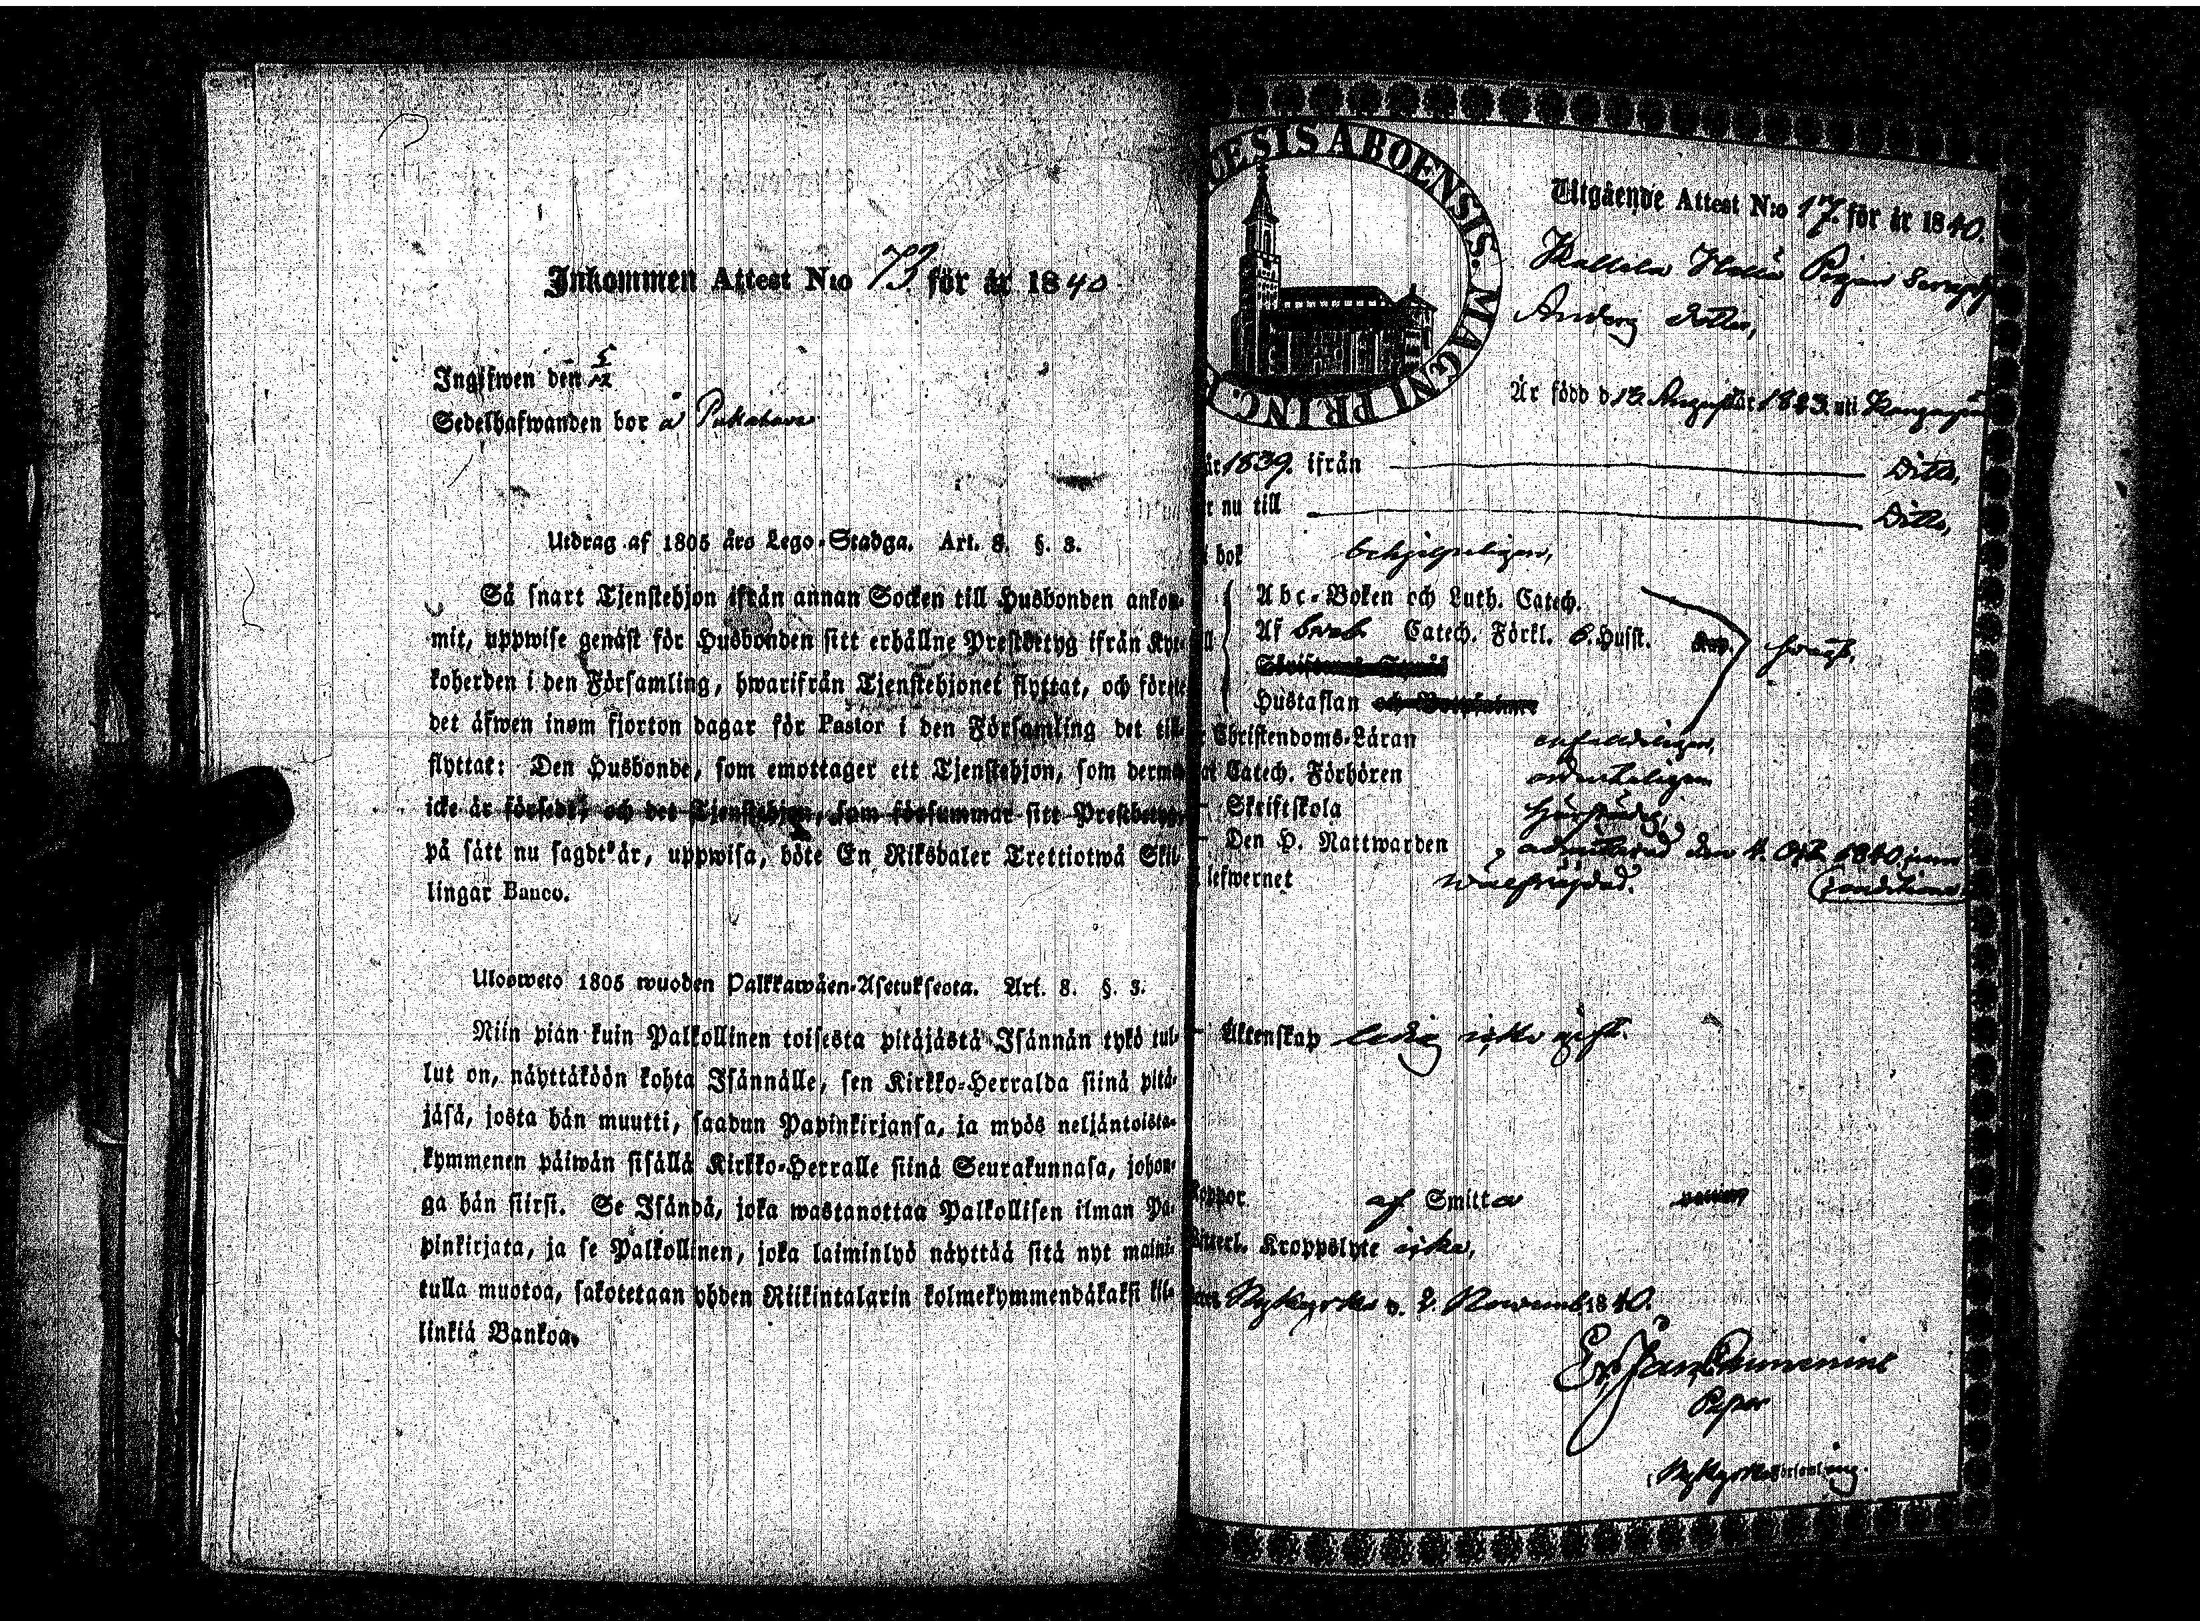 Inkommen Attest N:o 73 för år 1840
Ingifwen den 5/12
Sedelhafwanden bor å
Utdrag af 1805 års Lego-Stadga. Art. 8. §. 3.
Så snart Tjenstehjon ifrån annan Socken till Husbonden ankom-
mit, uppwise genast för Husbonden sitt erhållne Prestbetyg ifrån Kyr-
koherden i den Församling, hwarifrån Tjenstehjonet flyttat, och förete
det äfwen inom fjorton dagar för Pastor i den Församling det till-
flyttat: Den Husbonde, som emottager ett Tjenstehjon, som dermed
icke är försedt, och det Tjenstehjon, som försummar sitt Prestbetyg,
på sätt nu sagdt är, uppwisa, böte En Riksdaler Trettiotwå Skil
lingar Banco.
Ulosweto 1805 wuoden Palkkawäen-Asetuksesta. Art. 8. §. 3.
Niin pian kuin Palkollinen toisesta pitäjästä Isännän tykö tul-
lut on, näyttäköön kohta Isännälle, sen Kirkko-Herralda siinä pitä-
jäsä, josta hän muutti, saadun Papinkirjansa, ja myös neljäntoista-
kymmenen päiwän sisällä Kirkko-Herralle siinä Seurakunnasa, johon-
ga hän siirsi. Se Isändä, joka wastanottaa Palkollisen ilman Pa-
pinkirjata, ja se Palkollinen, joka laiminlyö näyttää sitä nyt maini-
tulla muotoa, sakotetaan yhden Riikintalarin kolmekymmendäkaksi kil-
linkiä Bankoa.
OESIS ABOENSIS. MAGNI PRINC.
Utgående Attest N:o 17. för år 1840.
Anders dotter,
Är född d 13 August år 1823. uti
år 1839. ifrån Ditto,
r nu till Ditto,
bok behjelpeligen,
Abc-Boken och Luth. Catech.
Af Catech. Förkl. 6. Hufst. Kap. svagt,
Hustaflan
Christendoms-Läran enfaldeligen,
Catech. Förhören ordenteligen
Skriftskola
Den H. Nattwarden admitterad den 4. Oct. 1840
lefwernet wälfrejdad.
Äktenskap ledig icke gift.
koppor af Smitta
Kroppslyte icke,
Nykyrko d. 2. Novemb 1840.
Nykyrko Församling.